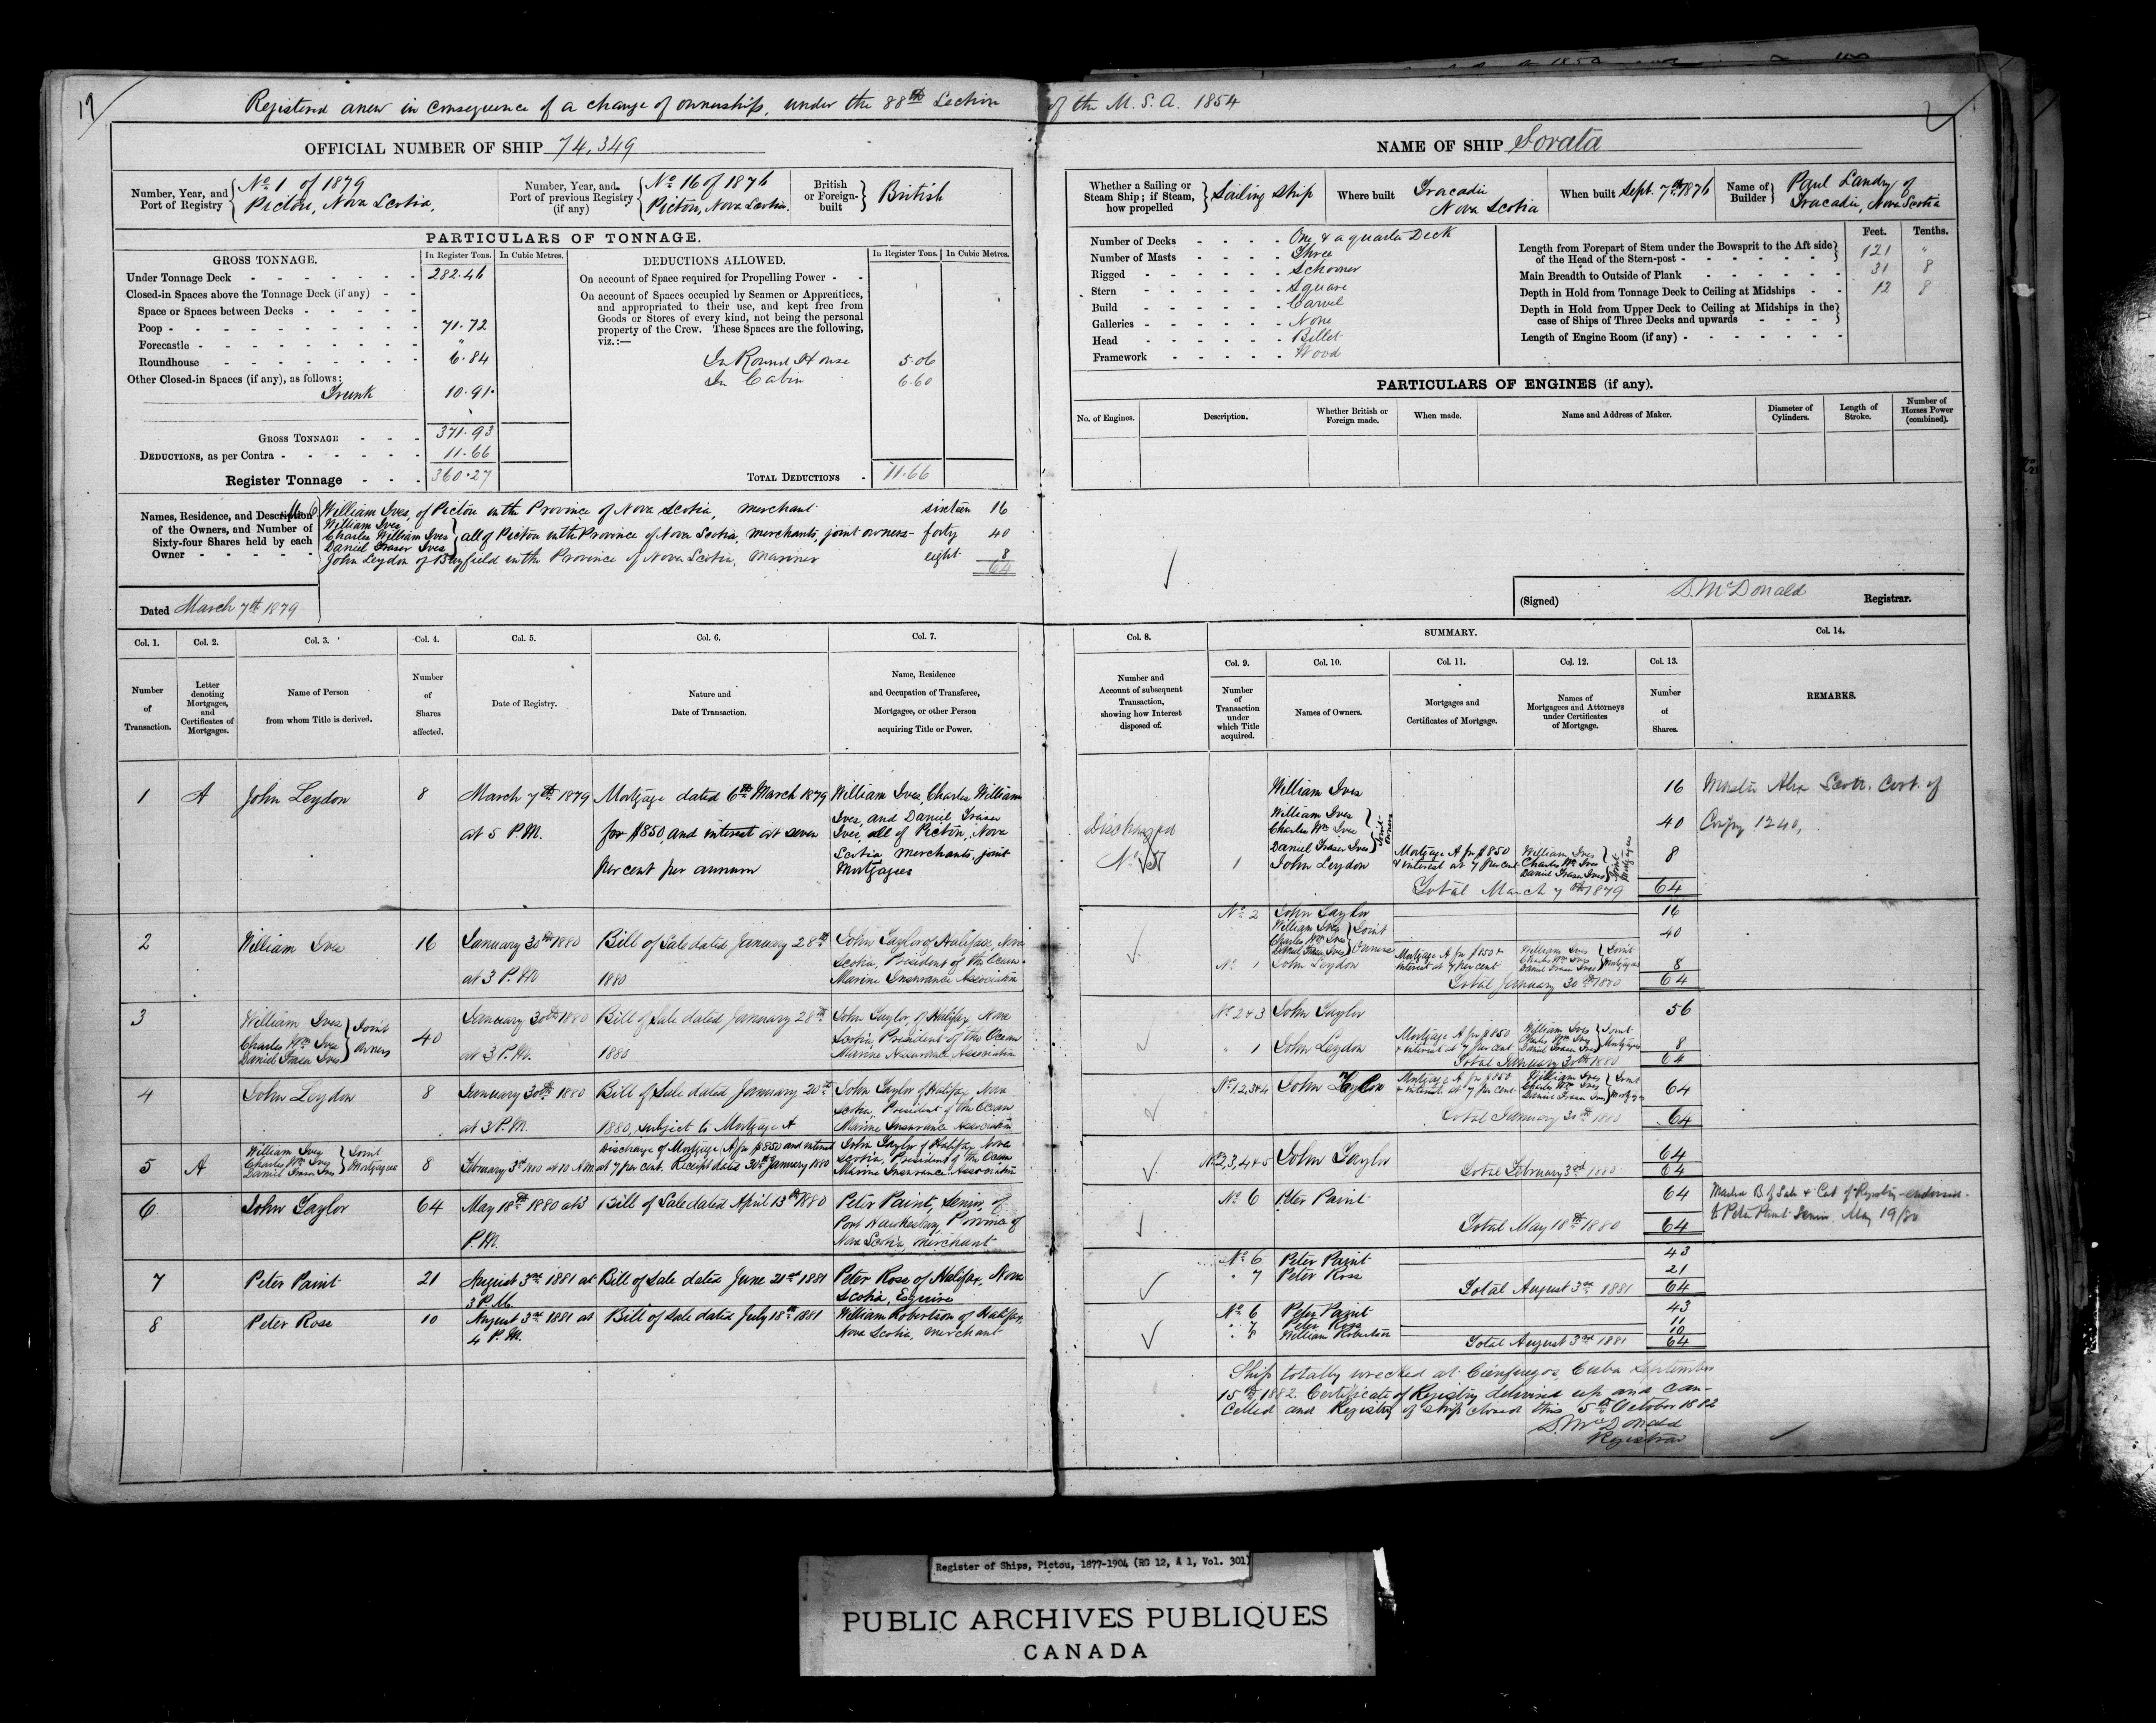 17
Registered anew in consequence of a change of ownership, under the 88th Section of the M.S.A. 1854
2
OFFICIAL NUMBER OF SHIP 74,349
Number, Year, and Port of Registry
No 1 of 1879
Pictou, Nova Scotia,
Number, Year, and Port of previous Registry (if any)
No 16 of 1876
Pictou, Nova Scotia.
British or Foreign-built
British
PARTICULARS OF TONNAGE.
GROSS TONNAGE.
In Register Tons.
In Cubic Metres.
Under Tonnage Deck 282.46
Closed-in Spaces above the Tonnage Deck (if any)
Space or Spaces between Decks
Poop 71.72
Forecastle "
Roundhouse 6.84
Other Closed-in Spaces (if any), as follows:
Trunk 10.91
GROSS TONNAGE 371.93
DEDUCTIONS, as per Contra 11.66
Register Tonnage 360.27
DEDUCTIONS ALLOWED.
In Register Tons.
In Cubic Metres.
On account of Space required for Propelling Power
On account of Spaces occupied by Seamen or Apprentices,
and appropriated to their use, and kept free from
Goods or Stores of every kind, not being the personal
property of the Crew. These Spaces are the following,
viz.:—
In Round House 5.06
In Cabin 6.60
TOTAL DEDUCTIONS 11.66
Names, Residence, and Description
of the Owners, and Number of
Sixty-four Shares held by each
Owner
William Ives, of Pictou in the Province of Nova Scotia, merchant sixteen 16
William Ives
Charles William Ives
Daniel Fraser Ives
all of Pictou in the Province of Nova Scotia, merchants, joint owners - forty 40
John Leydon of Bayfield in the Province of Nova Scotia, Mariner eight 8
64
Dated March 7th 1879
NAME OF SHIP Sorata
Whether a Sailing or Steam Ship; if Steam, how propelled
Sailing Ship
Where built
Tracadie
Nova Scotia
When built Sept. 7th 1876
Name of Builder
Paul Landry of
Tracadie, Nova Scotia
Number of Decks One & a quarter Deck
Number of Masts Three
Rigged Schooner
Stern Square
Build Carvel
Galleries None
Head Billet
Framework Wood
Feet. Tenths.
Length from Forepart of Stem under the Bowsprit to the Aft side
of the Head of the Stern-post 121 "
Main Breadth to Outside of Plank 31 8
Depth in Hold from Tonnage Deck to Ceiling at Midships 12 8
Depth in Hold from Upper Deck to Ceiling at Midships in the
case of Ships of Three Decks and upwards
Length of Engine Room (if any)
PARTICULARS OF ENGINES (if any).
No. of Engines.
Description.
Whether British or Foreign made.
When made.
Name and Address of Maker.
Diameter of Cylinders.
Length of Stroke.
Number of Horses Power (combined).
(Signed) D. McDonald Registrar.
Col. 1. Col. 2. Col. 3. Col. 4. Col. 5. Col. 6. Col. 7.
Number of Transaction.
Letter denoting Mortgages, and Certificates of Mortgages.
Name of Person from whom Title is derived.
Number of Shares affected.
Date of Registry.
Nature and Date of Transaction.
Name, Residence and Occupation of Transferee, Mortgagee, or other Person acquiring Title or Power.
1 A John Leydon 8
March 7th 1879
at 5 P.M.
Mortgage dated 6th March 1879
for $850, and interest at seven
per cent per annum
William Ives, Charles William
Ives, and Daniel Fraser
Ives, all of Pictou, Nova
Scotia, Merchants, joint
Mortgagees
2 William Ives 16
January 30th 1880
at 3 P.M.
Bill of Sale dated January 28th
1880
John Taylor of Halifax, Nova
Scotia, President of the Ocean
Marine Insurance Association
3
William Ives
Charles Wm Ives
Daniel Fraser Ives
Joint Owners
40
January 30th 1880
at 3 P.M.
Bill of Sale dated January 28th
1880
John Taylor, of Halifax, Nova
Scotia, President of the Ocean
Marine Assurance Association
4 John Leydon 8
January 30th 1880
at 3 P.M.
Bill of Sale dated January 20th
1880, subject to Mortgage A
John Taylor of Halifax, Nova
Scotia, President of the Ocean
Marine Insurance Association
5 A
William Ives
Charles Wm Ives
Daniel Fraser Ives
Joint Mortgagees
8
February 3rd 1880 at 10 A.M.
Discharge of Mortgage (A) for $850 and interest
at 7 per cent. Receipt dated 30th January 1880
John Taylor of Halifax, Nova
Scotia, President of the Ocean
Marine Insurance Association
6 John Taylor 64
May 18th 1880 at 3
P.M.
Bill of Sale dated April 13th 1880
Peter Paint, Senior, of
Port Hawkesbury, Province of
Nova Scotia, Merchant
7 Peter Paint 21
August 3rd 1881 at
3 P.M.
Bill of Sale dated June 21st 1881
Peter Ross of Halifax, Nova
Scotia, Esquire
8 Peter Ross 10
August 3rd 1881 at
4 P.M.
Bill of Sale dated July 18th 1881
William Robertson of Halifax,
Nova Scotia, Merchant
Col. 8.
Number and Account of subsequent Transaction, showing how Interest disposed of.
SUMMARY.
Col. 9. Col. 10. Col. 11. Col. 12. Col. 13. Col. 14.
Number of Transaction under which Title acquired.
Names of Owners.
Mortgages and Certificates of Mortgage.
Names of Mortgagees and Attorneys under Certificates of Mortgage.
Number of Shares.
REMARKS.
Discharged
No 5
William Ives 16
William Ives
Charles Wm Ives
Daniel Fraser Ives
Joint owners 40
1 John Leydon
Mortgage A for $850
& interest at 7 per cent
William Ives
Charles Wm Ives
Daniel Fraser Ives
Joint Mortgagees
8
Total March 7th 1879 64
Master Alex Scott. Cert. of
1240,
No 2 John Taylor 16
William Ives
Charles Wm Ives
Daniel Fraser Ives
Joint Owners 40
No 1 John Leydon
Mortgage A for $850 &
interest at 7 per cent
William Ives
Charles Wm Ives
Daniel Fraser Ives
Joint Mortgagees
8
Total January 30th 1880 64
No 2 & 3 John Taylor 56
" 1 John Leydon
Mortgage A for $850
& interest at 7 per cent
William Ives
Charles Wm Ives
Daniel Fraser Ives
Joint Mortgagees
8
Total January 30th 1880 64
No 1,2,3&4 John Taylor
Mortgage A for $850
& interest at 7 per cent
William Ives
Charles Wm Ives
Daniel Fraser Ives
Joint Mortgagees
64
Total January 30th 1880 64
No 2,3,4&5 John Taylor 64
Total February 3rd 1880 64
No 6 Peter Paint 64
Total May 18th 1880 64
B. of Sale & Cert of Registry endorsed
to Peter Paint Senior. May 19/80
No 6 Peter Paint 43
" 7 Peter Ross 21
Total August 3rd 1881 64
No 6 Peter Paint 43
" 7 Peter Ross 11
" 8 William Robertson 10
Total August 3rd 1881 64
Ship totally wrecked at Cienfuegos, Cuba September
15th 1882. Certificate of Registry delivered up and can-
celled and Registry of Ship closed this 5th October 1882
D. McDonald
Registrar
Register of Ships, Pictou, 1877-1904 (RG 12, A 1, Vol. 301)
PUBLIC ARCHIVES PUBLIQUES
CANADA